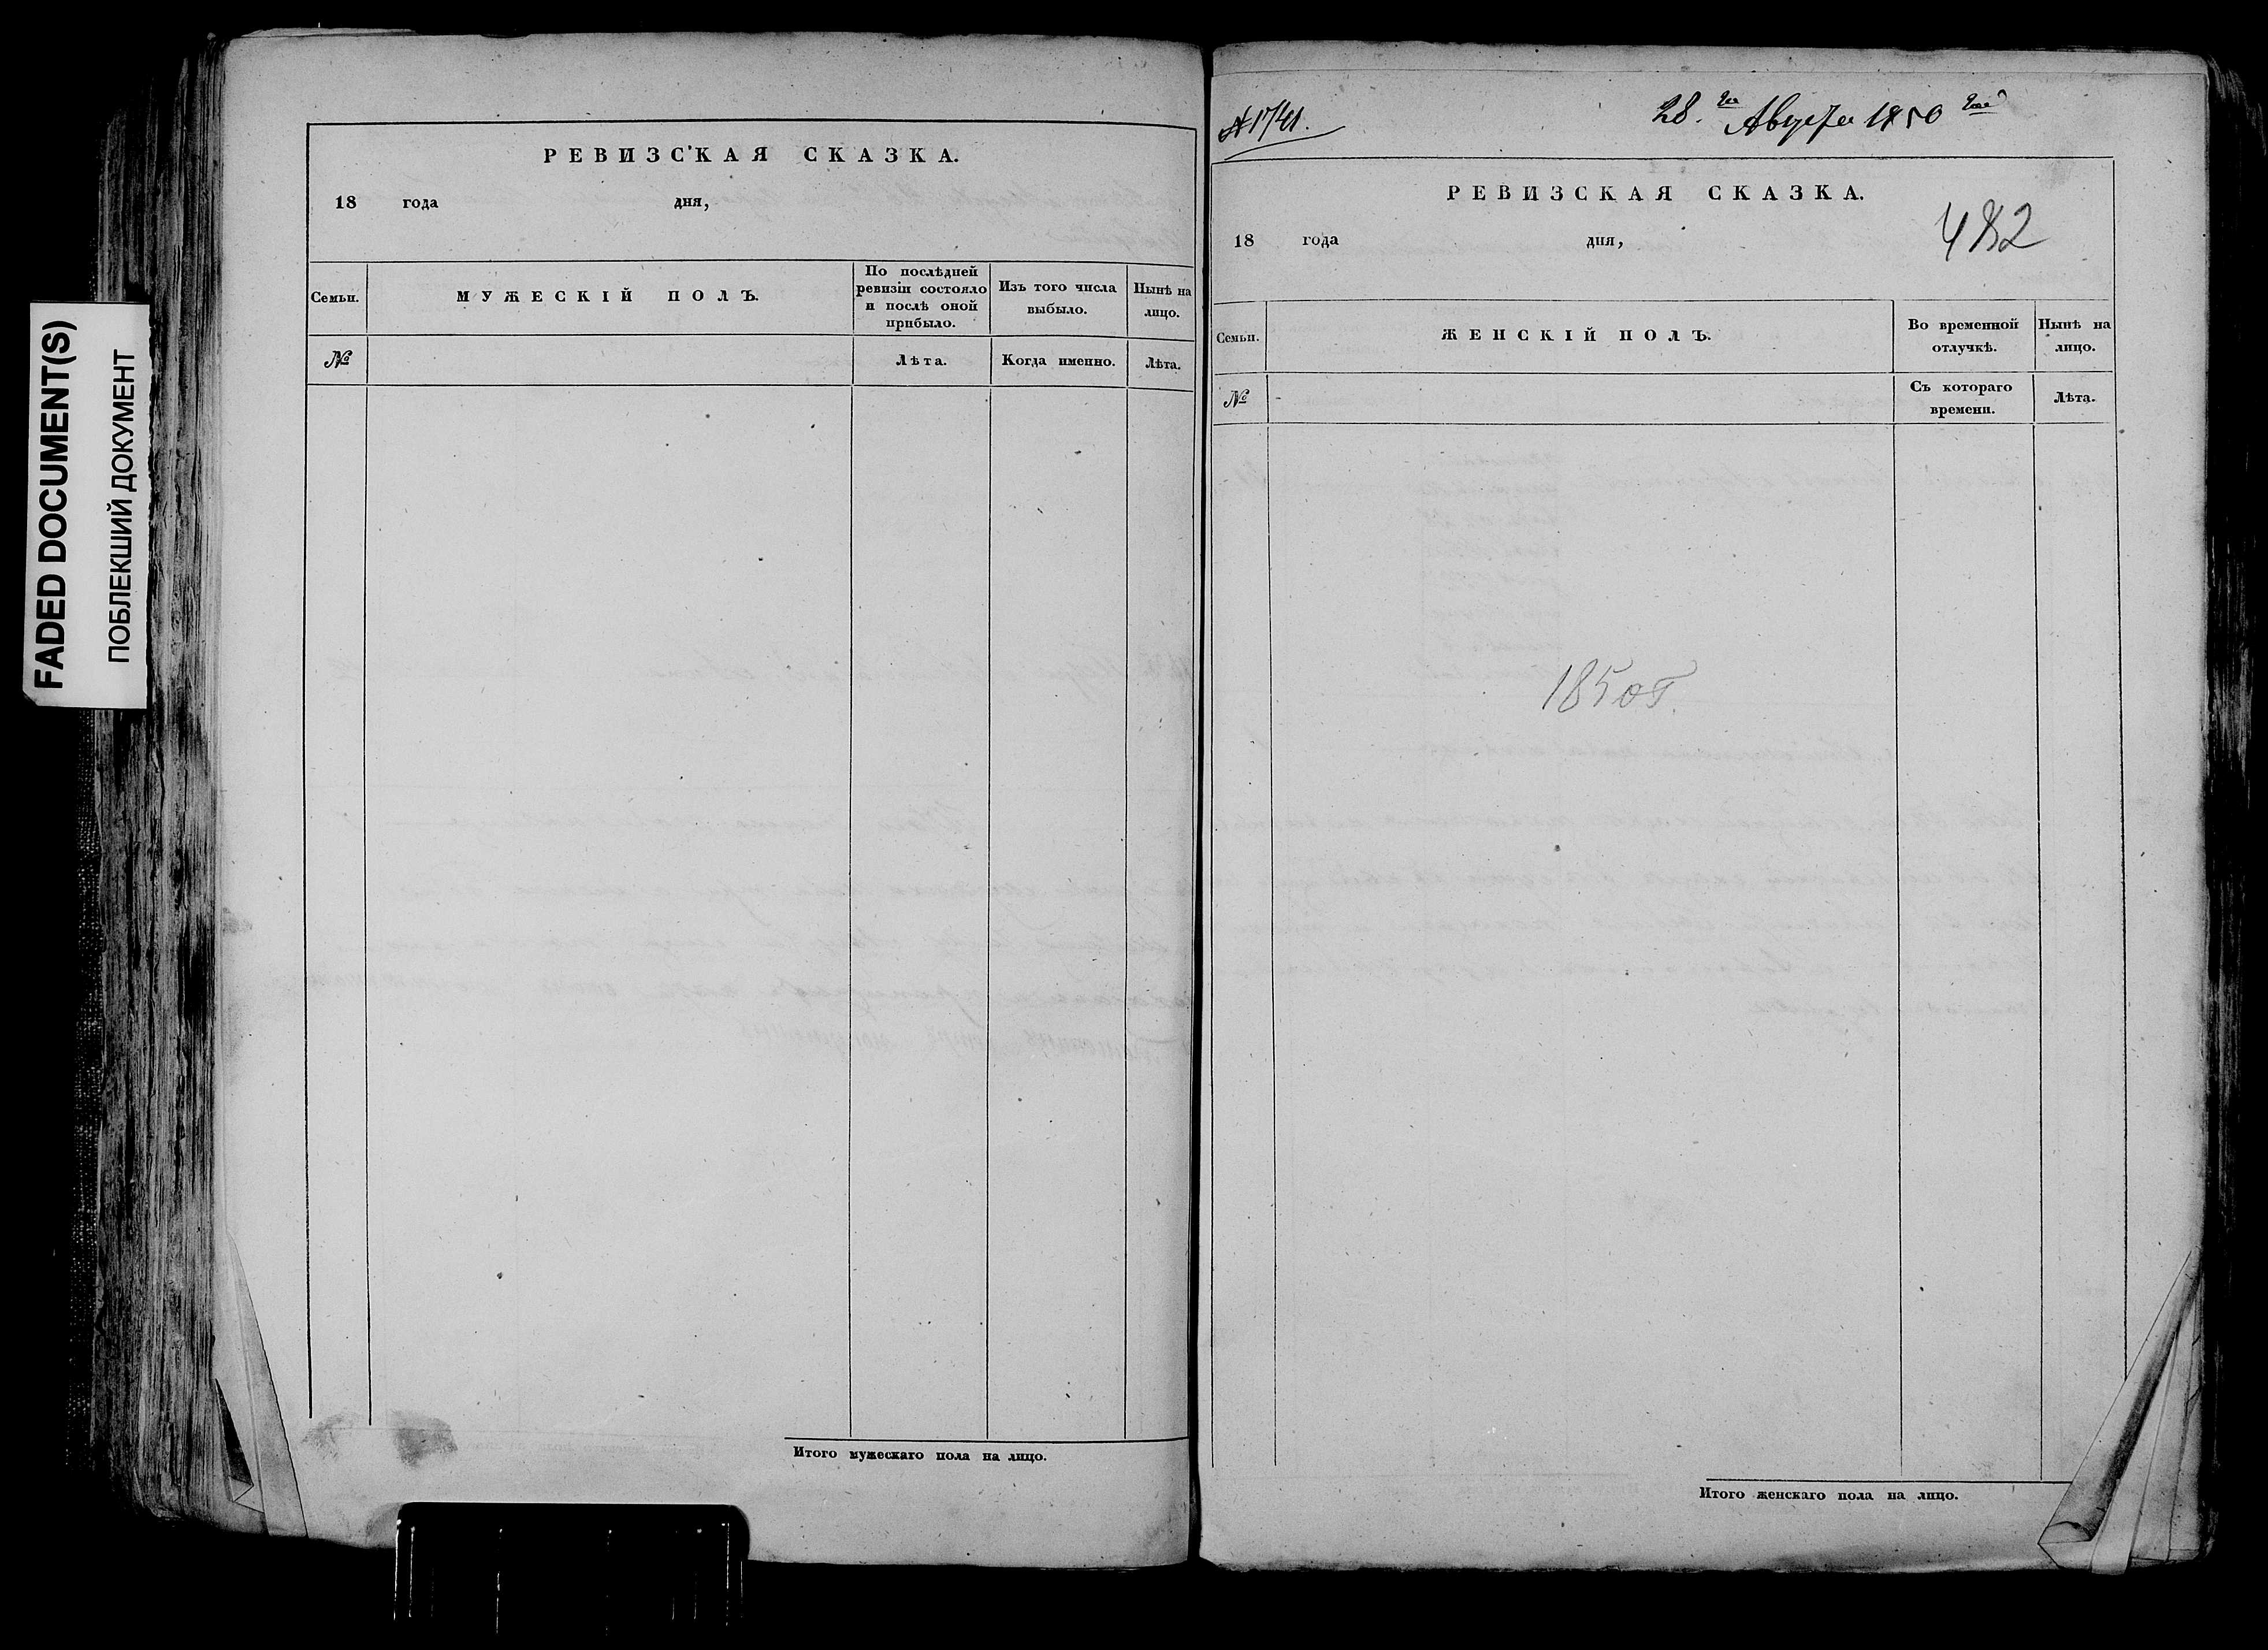 FADED DOCUMENT(S)
ПОБЛЕКШИЙ ДОКУМЕНТ
РЕВИЗСКАЯ СКАЗКА.
18 года дня,
Семьи.
МУЖЕСКІЙ ПОЛЪ.
По послѣдней
ревизіи состояло
и послѣ оной
прибыло.
Изъ того числа
выбыло.
Нынѣ на
лицо.
№
Лѣта.
Когда именно.
Лѣта.
Итого мужескаго пола на лицо.
№ 1741.
28. го Августа 1850 года
РЕВИЗСКАЯ СКАЗКА.
482
18 года дня,
Семьи.
ЖЕНСКІЙ ПОЛЪ.
Во временной
отлучкѣ.
Нынѣ на
лицо.
№
Съ котораго
времени.
Лѣта.
1850 г.
Итого женскаго пола на лицо.